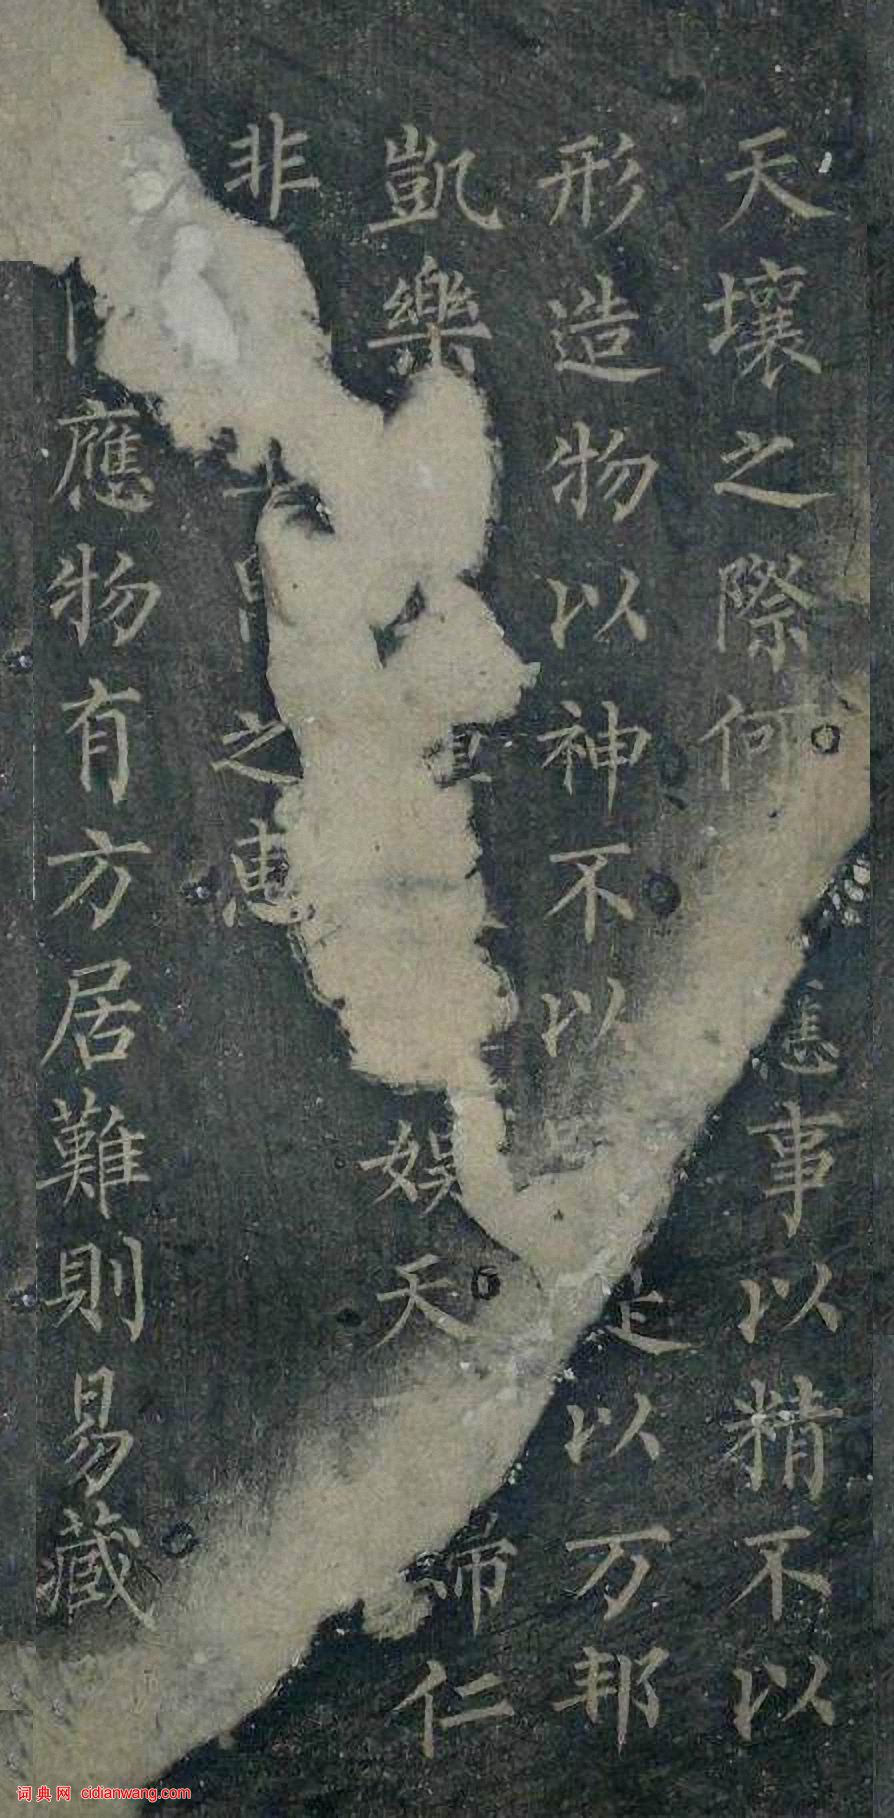 天壤之際何應事以精不以
形造物以神不以足以万邦
凱樂娛天歸仁
非之惠
應物有方居難則易藏
词典网 cidianwang.com